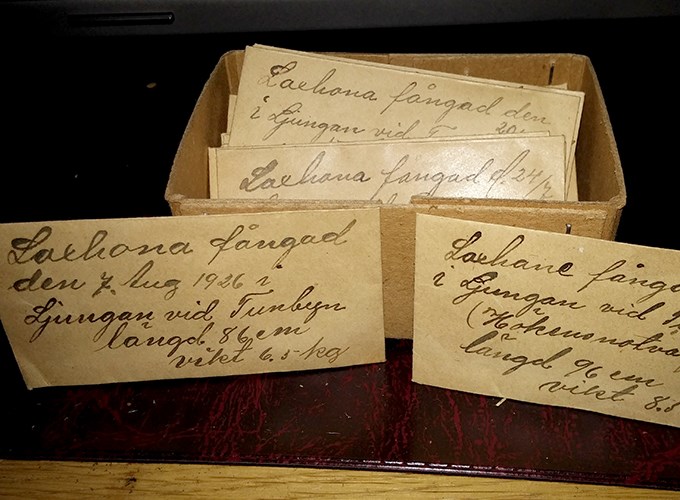 Laxhona fångad den
i Ljungan vid T
Laxhona fångad d. 24/7
Laxhona fångad
den 7. Aug 1926 i
Ljungan vid Tunbyn
längd 86 cm
vikt 6.5 kg
Laxhane fånga
i Ljungan vid
(Hökensnotva
längd 96 cm
vikt 8.5